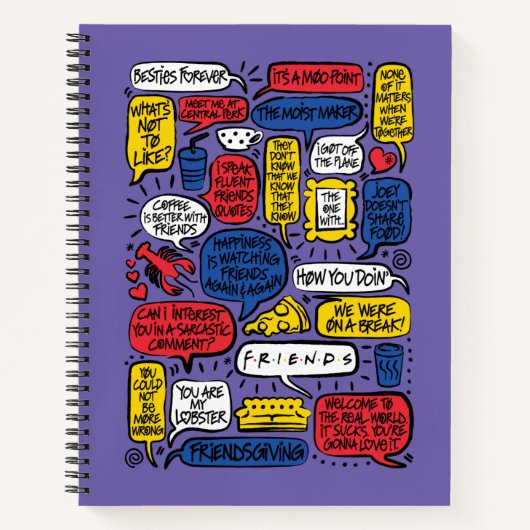 BESTIES FOREVER
IT'S A MOO POINT
NONE
OF IT
MATTERS
WHEN
WE'RE
TOGETHER
WHAT'S
NOT
TO
LIKE?
MEET ME AT
CENTRAL PERK
THE MOIST MAKER
THEY
DON'T
KNOW
THAT WE
KNOW
THAT
THEY
KNOW
I GOT OFF
THE PLANE
I SPEAK
FLUENT
FRIENDS
QUOTES
THE
ONE
WITH...
JOEY
DOESN'T
SHARE
FOOD!
COFFEE
IS BETTER WITH
FRIENDS
HAPPINESS
IS WATCHING
FRIENDS
AGAIN & AGAIN
HOW YOU DOIN'
CAN I INTEREST
YOU IN A SARCASTIC
COMMENT?
WE WERE
ON A BREAK!
F·R·I·E·N·D·S
YOU
COULD
NOT
BE
MORE
WRONG
YOU ARE
MY
LOBSTER
WELCOME TO
THE REAL WORLD.
IT SUCKS. YOU'RE
GONNA LOVE IT.
FRIENDSGIVING